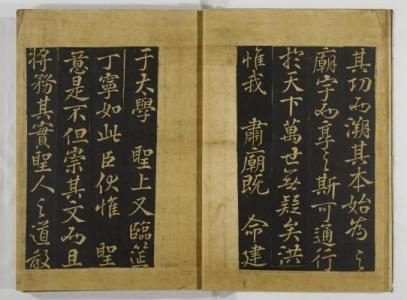 其功而溯其本始為之
廟宇而享之斯可通行
於天下萬世無疑矣洪
惟我 肅廟既 命建
于太學 聖上又臨筵
丁寧如此臣伏惟 聖
意是不但崇其文而且
將務其實聖人之道散